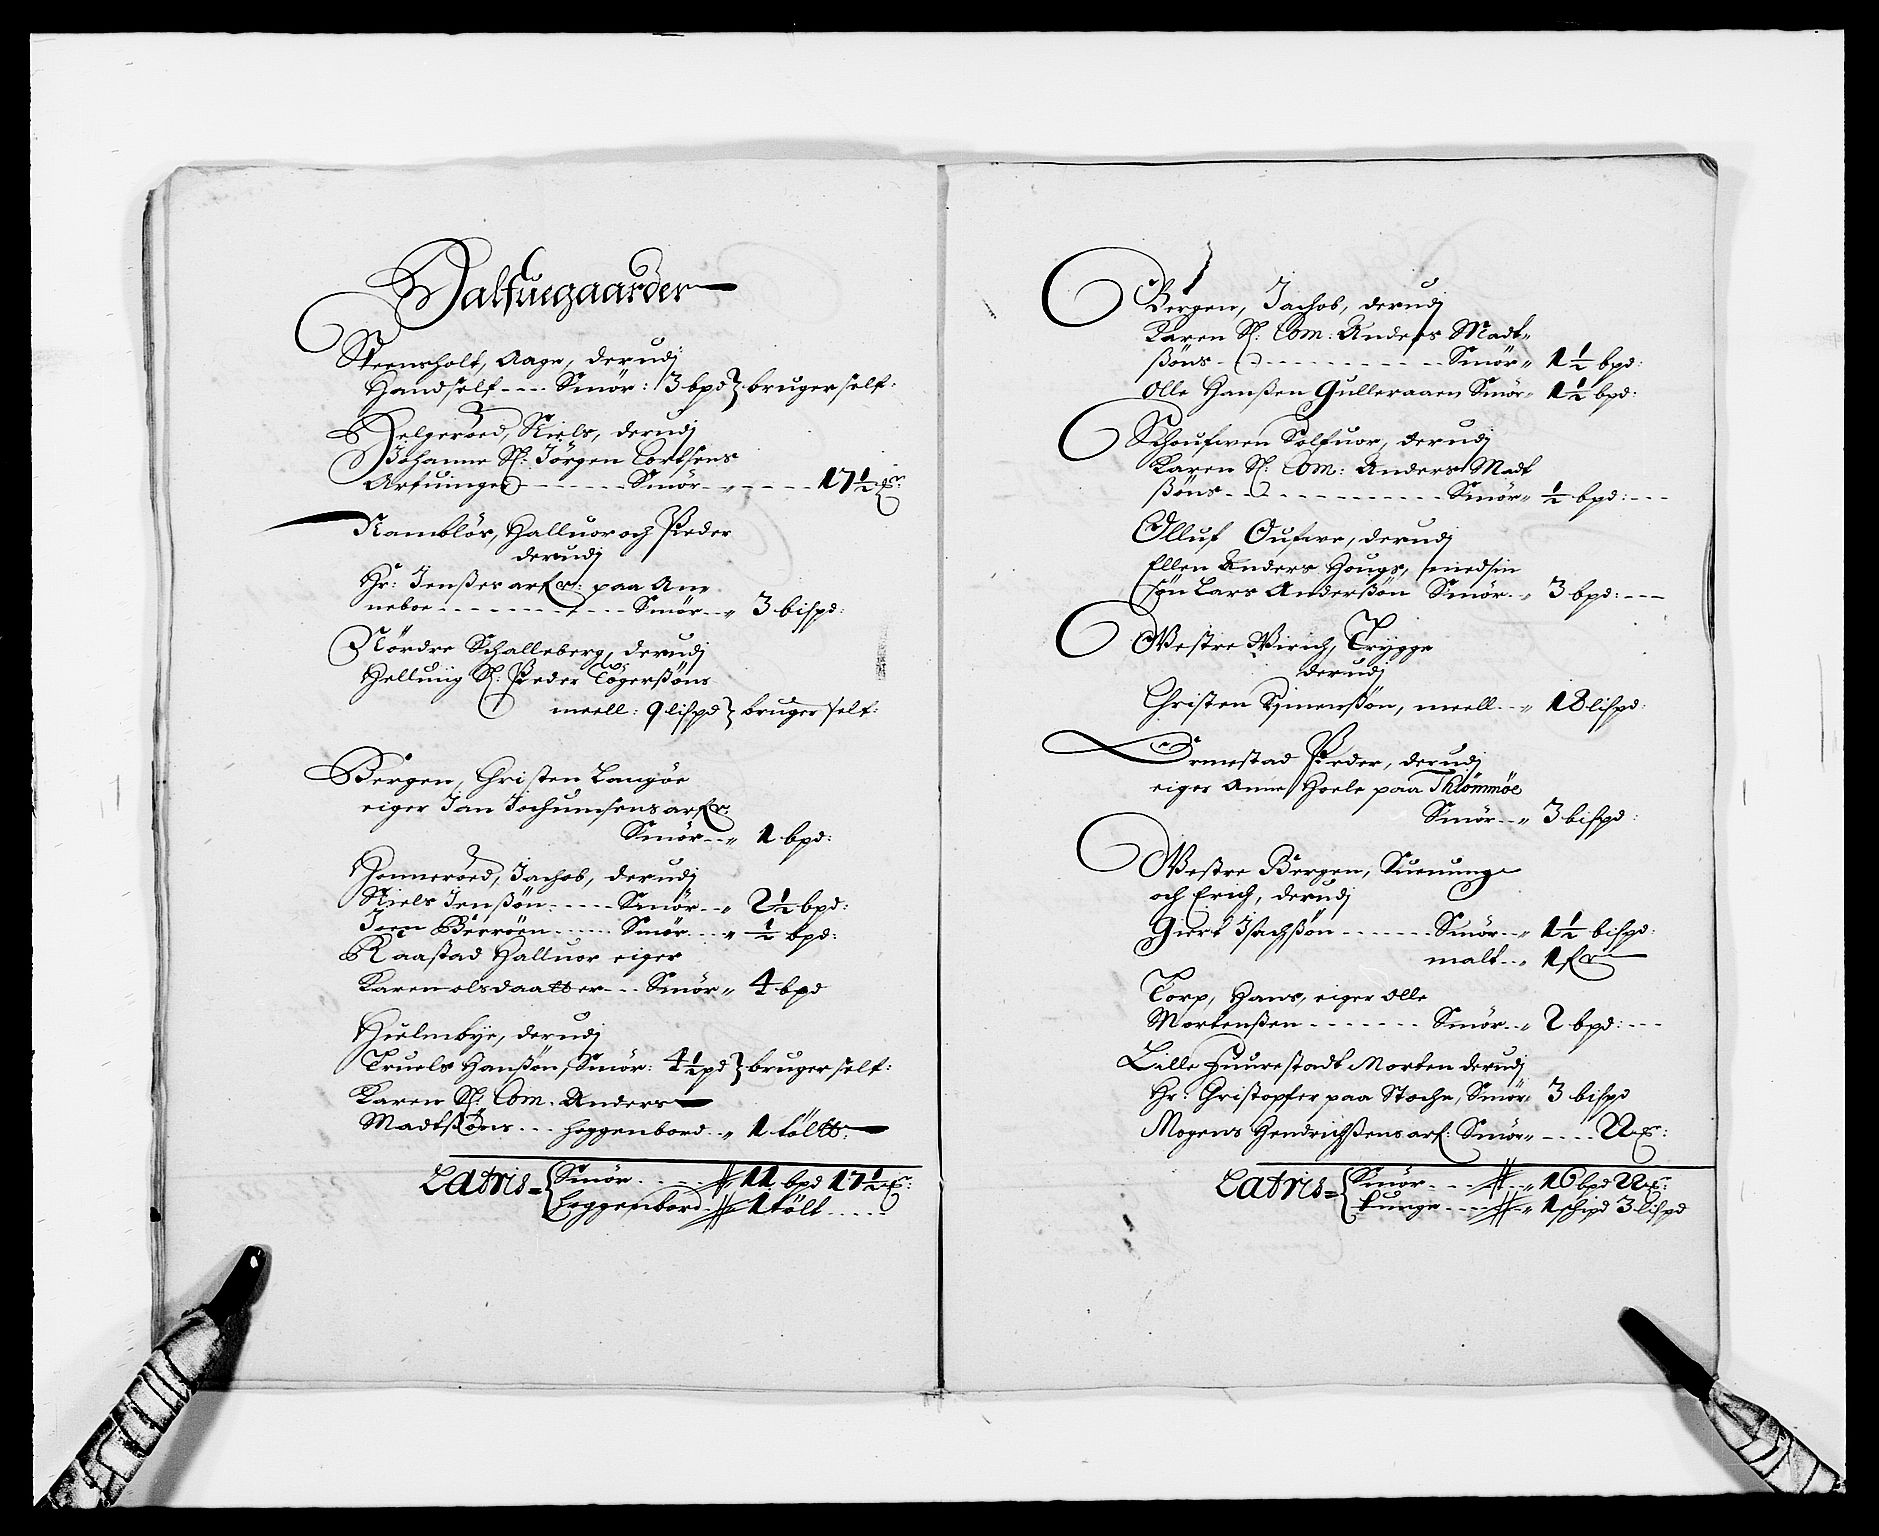 Halfuegaarder
Steensholt, Aage, derudj
Handself --- Smör: 3 bpd } bruger self:
Helgeroed, Niels, derudj
Johanne Sl: Jörgen Corthsens
Arfuinger ------ Smör „ ---- 17½ ℔:
Namblös, Halluor och Peder
derudj
Hr: Jenßes arfr: paa An
neboe ---------- Smör -- „ 3 bispd:
Nördre Schalleberg, derudj
Hellwig Sl: Peder Tögerßöns
meell: 9 lispd } bruger self:
Bergen, Christen Langöe
eiger Jan Jochumsens arfr
Smör -- „ 1 bpd:
Honneröed, Jachob, derudj
Niels Jenßön ----- Smör -- „ 2½ bpd:
Joen Beeröen ----- Smör --- „ ½ bpd:
Raastad Halluor eiger
Karen olsdaatter --- Smör „ 4 bpd
Hielmbye, derudj
Truels Hanßön, Smör: 4½ pd } bruger self:
Karen Sl: Com. Anders
Madtßöns --- Hoggenbord -- „ 1 töltt:
Latris = { Smör ----- „ 11 bpd 17½ ℔:
Hoggenbord „ 1 tölt -----
Bergen, Jachob, derudj
Karen Sl: Com: Anders Madt-
ßöns ------------ Smör „ 1½ bpd:
Olle Hanßen Gulleraaen Smör „ 1½ bpd:
Schoufwen Solfuor, derudj
Karen Sl: Com: Anders Madt
ßöns ------------ Smör „ ½ bpd: ---
Olluf Oufwe, derudj
Ellen Anders Hougs, med sin
sön Lars Anderßön Smör -- „ 3 bpd: ---
Westre Wirich, Trygge
derudj
Christen Simenßön, meell -- „ 18 lispd:
Ormestad Peder, derudj
eiger Anne Hoele paa Thrommöe
Smör -- „ 3 bispd:
Westre Bergen, Suenung
och Erich, derudj
Giert Isachßön ------- Smör -- „ 1½ bispd:
malt -- „ 1 fr
Torp, Hans, eiger Olle
Mortenßen ------- Smör -- „ 2 bpd: ---
Lille Fuurestadt Morten derudj
Hr: Christopfer paa Stochn, Smör „ 3 bispd
Mogens Hendrichßens arf: Smör „ ---- 22 ℔:
Latris = { Smör ---- „ 16 bpd 22 ℔:
tunge ---- „ 1 schipd 3 lispd